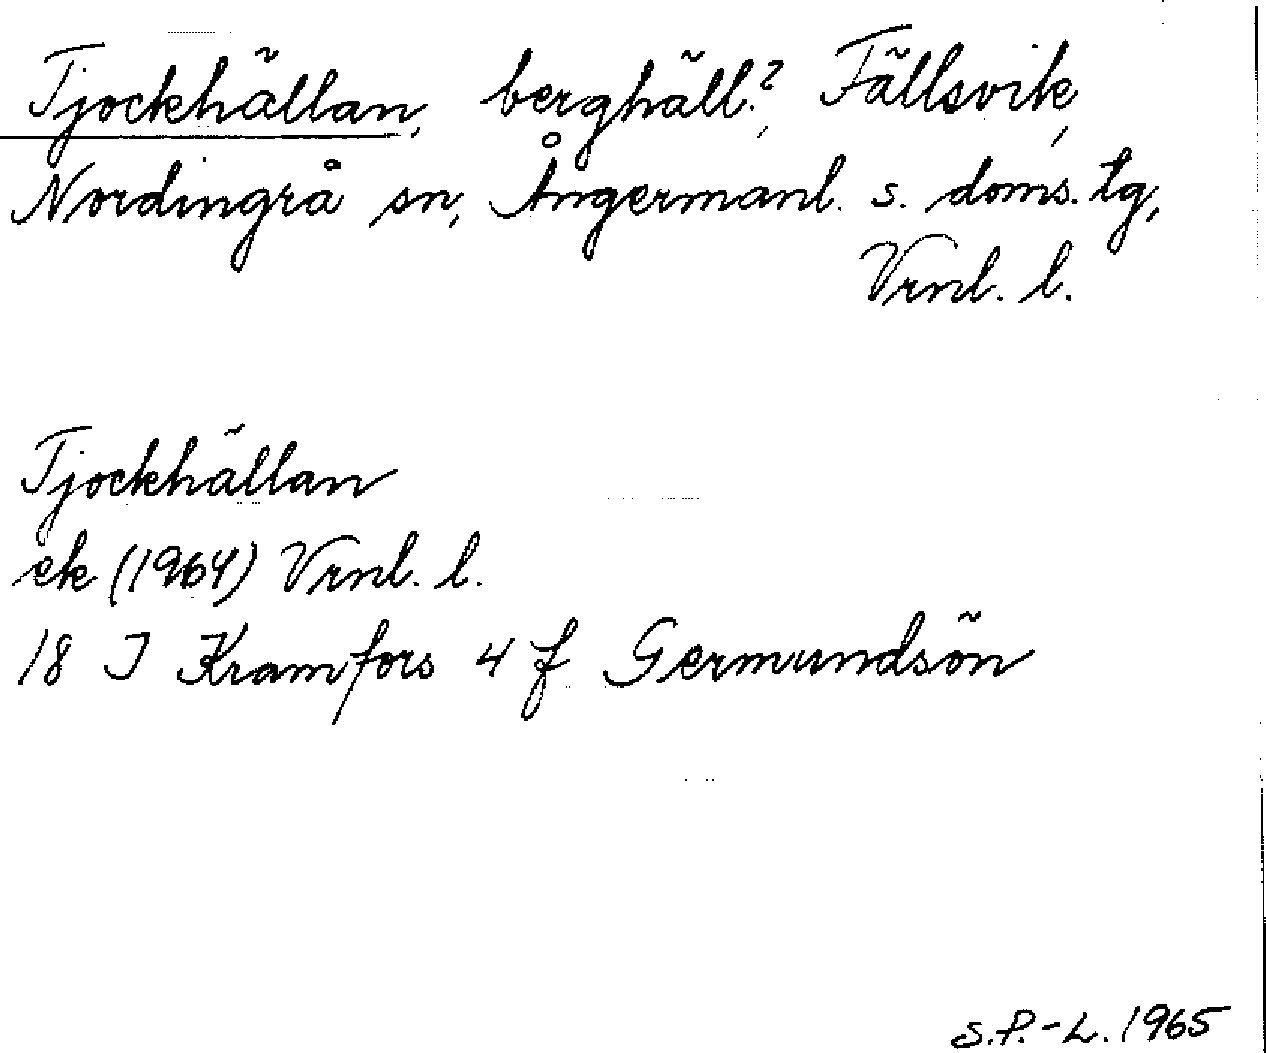 Tjockhällan, berghäll?, Fällsvik,
Nordingrå sn, Ångermanl. s. doms. tg,
Vrnl. l.
Tjockhällan
ek (1964) Vrnl. l.
18 I Kramfors 4 f Germundsön
S.P.-L. 1965